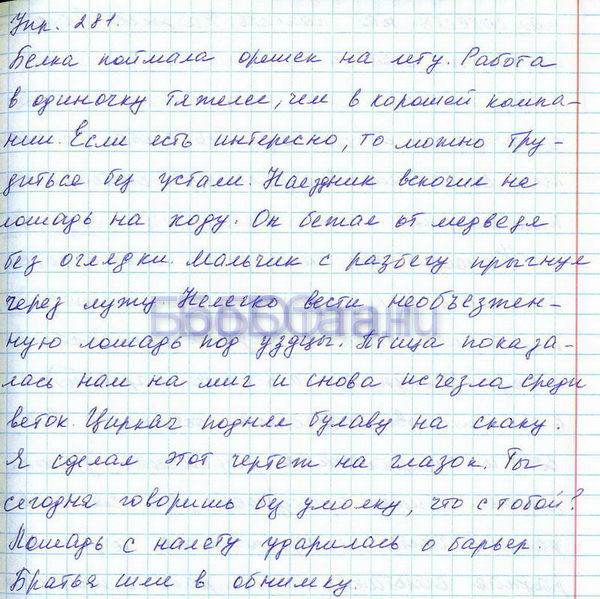 Упр. 281.
Белка поймала орешек на лету. Работа
в одиночку тяжелее, чем в хорошей компа-
нии. Если есть интересно, то можно тру-
диться без устали. Наездник вскочил на
лошадь на ходу. Он бежал от медведя
без оглядки. Мальчик с разбегу прыгнул
через лужу Нелегко вести необъезжен-
ную лошадь под уздцы. Птица показа-
лась нам на миг и снова исчезла среди
веток. Циркач поднял булаву на скаку.
Я сделал этот чертеж на глазок. Ты
сегодня говоришь без умолку, что с тобой?
Лошадь с налету ударилась о барьер.
Братья шли в обнимку.